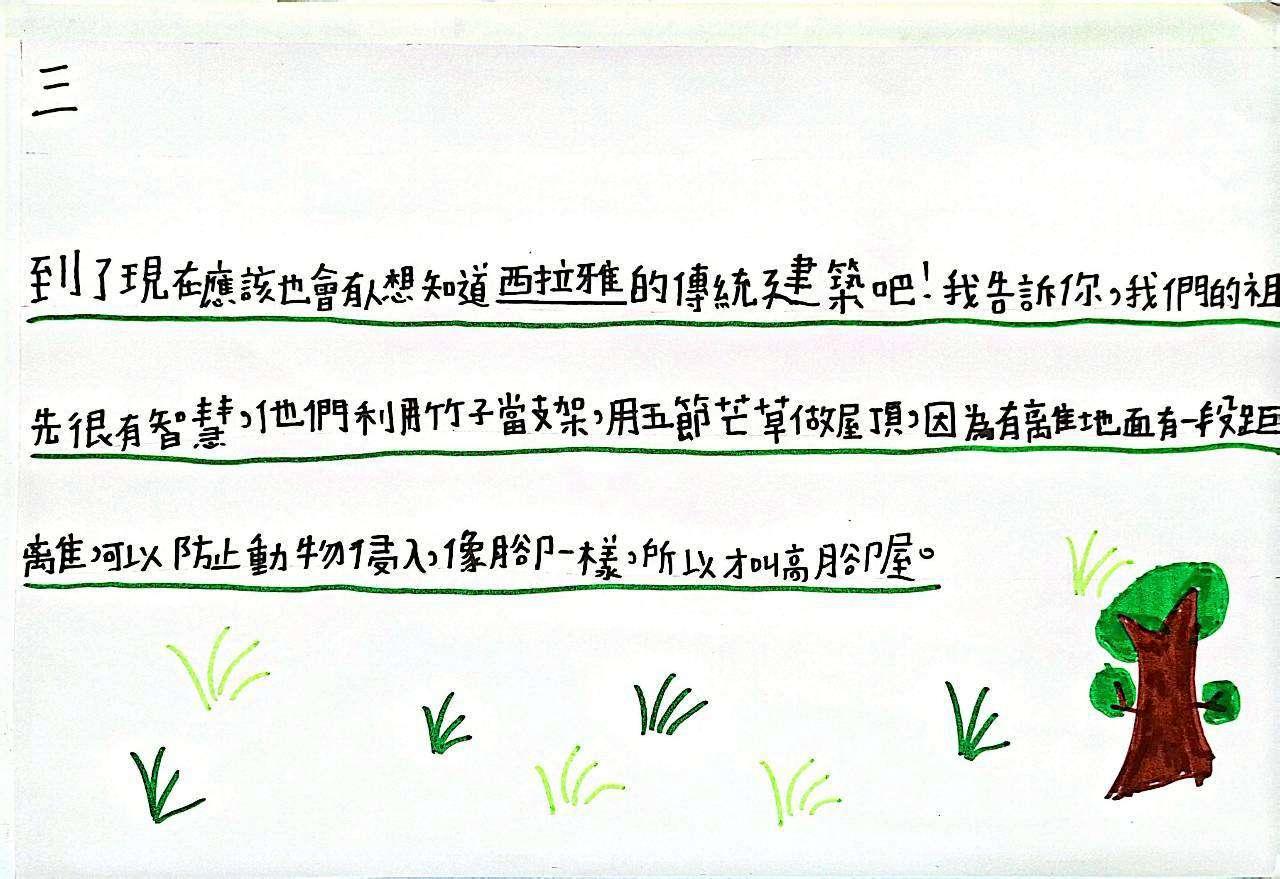 三
到了現在應該也會有人想知道西拉雅的傳統建築吧!我告訴你,我們的祖
先很有智慧,他們利用竹子當支架,用五節芒草做屋頂,因為有離地面有一段距
離,可以防止動物侵入,像腳一樣,所以才叫高腳屋。